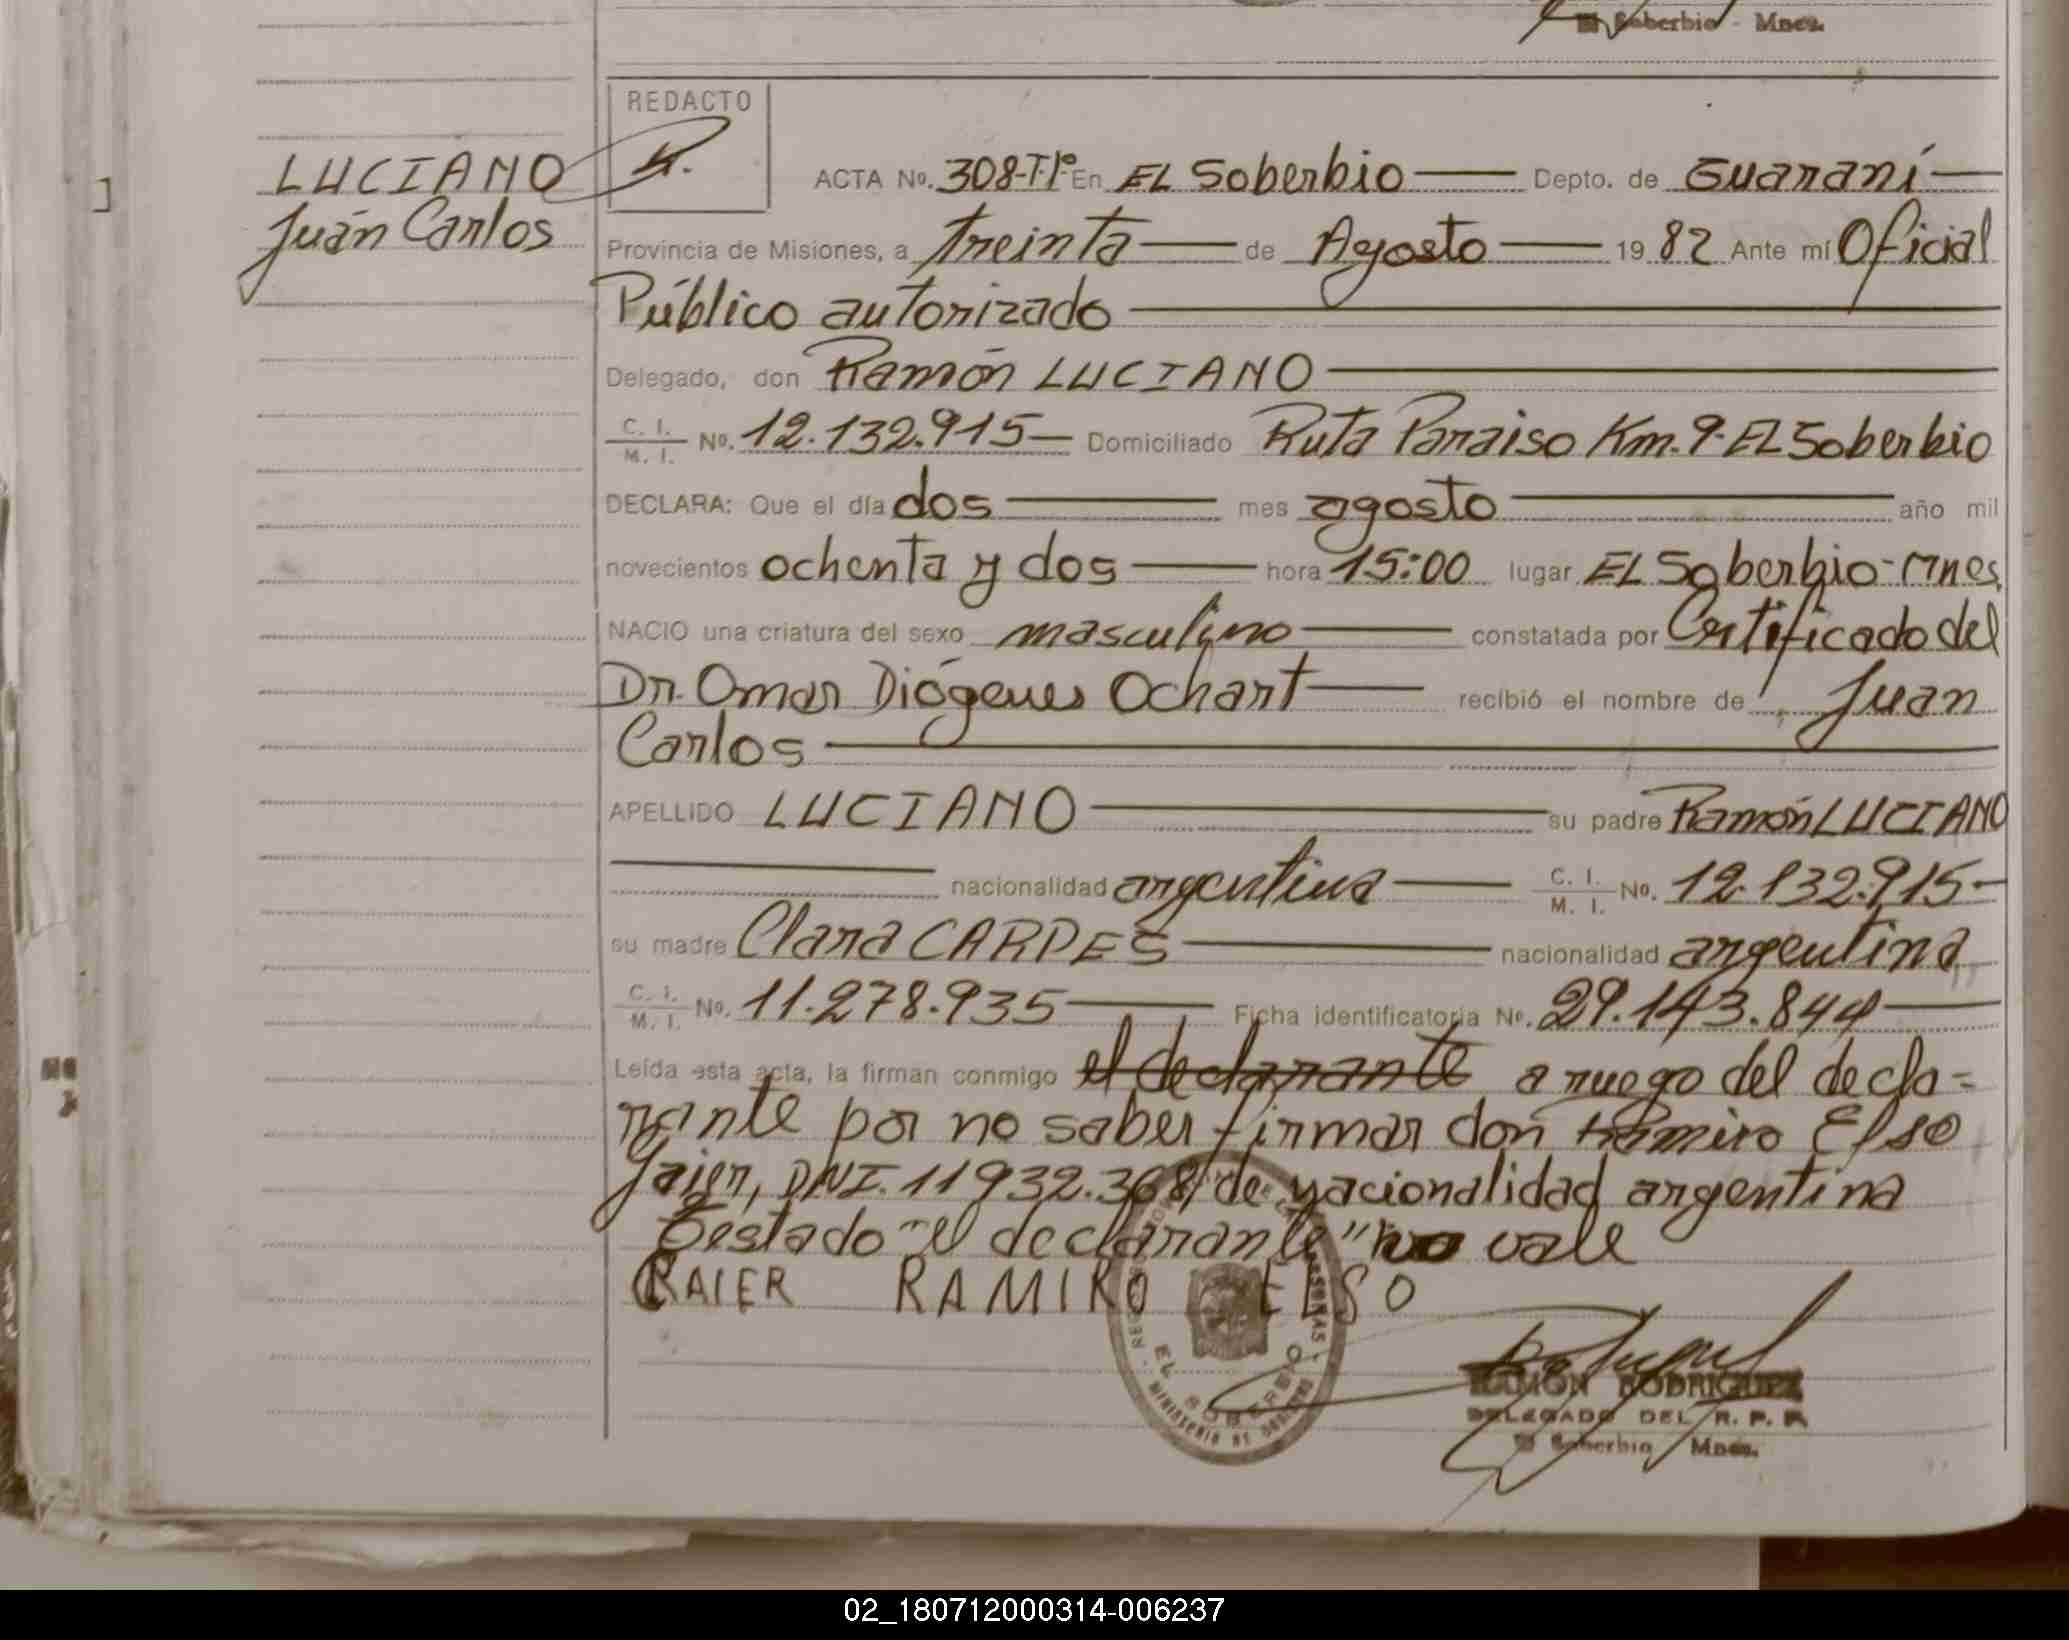 Soberbio - Mnes.
REDACTO
LUCIANO
Juán Carlos
ACTA No. 308-Tº1º En EL Soberbio Depto. de Guaraní
Provincia de Misiones, a treinta de Agosto 19 82 Ante mí Oficial
Público autorizado
Delegado, don Ramón LUCIANO
C. I. M. I. No. 12.132.915 Domiciliado Ruta Paraiso Km. 9-EL Soberbio
DECLARA: Que el día dos mes agosto año mil
novecientos ochenta y dos hora 15:00 lugar EL Soberbio-Mnes.
NACIO una criatura del sexo masculino constatada por Certificado del
Dr. Omar Diógenes Ochart recibió el nombre de Juan
Carlos
APELLIDO LUCIANO su padre Ramón LUCIANO
nacionalidad argentina C. I. M. I. No. 12.132.915-
su madre Clara CARPES nacionalidad argentina
C. I. M. I. No. 11.278.935 Ficha identificatoria No. 29.143.844
Leída esta acta, la firman conmigo el declarante a ruego del decla-
rante por no saber firmar don Ramiro Elso
DNI. 11932.368, de nacionalidad argentina
Testado "el declarante" no vale
RAIER RAMIRO ELSO
EL SOBERBIO
MINISTERIO DE GOBIERNO
RAMÓN RODRIGUEZ
DELEGADO DEL R. P. P.
El Soberbio Mnes.
02_180712000314-006237